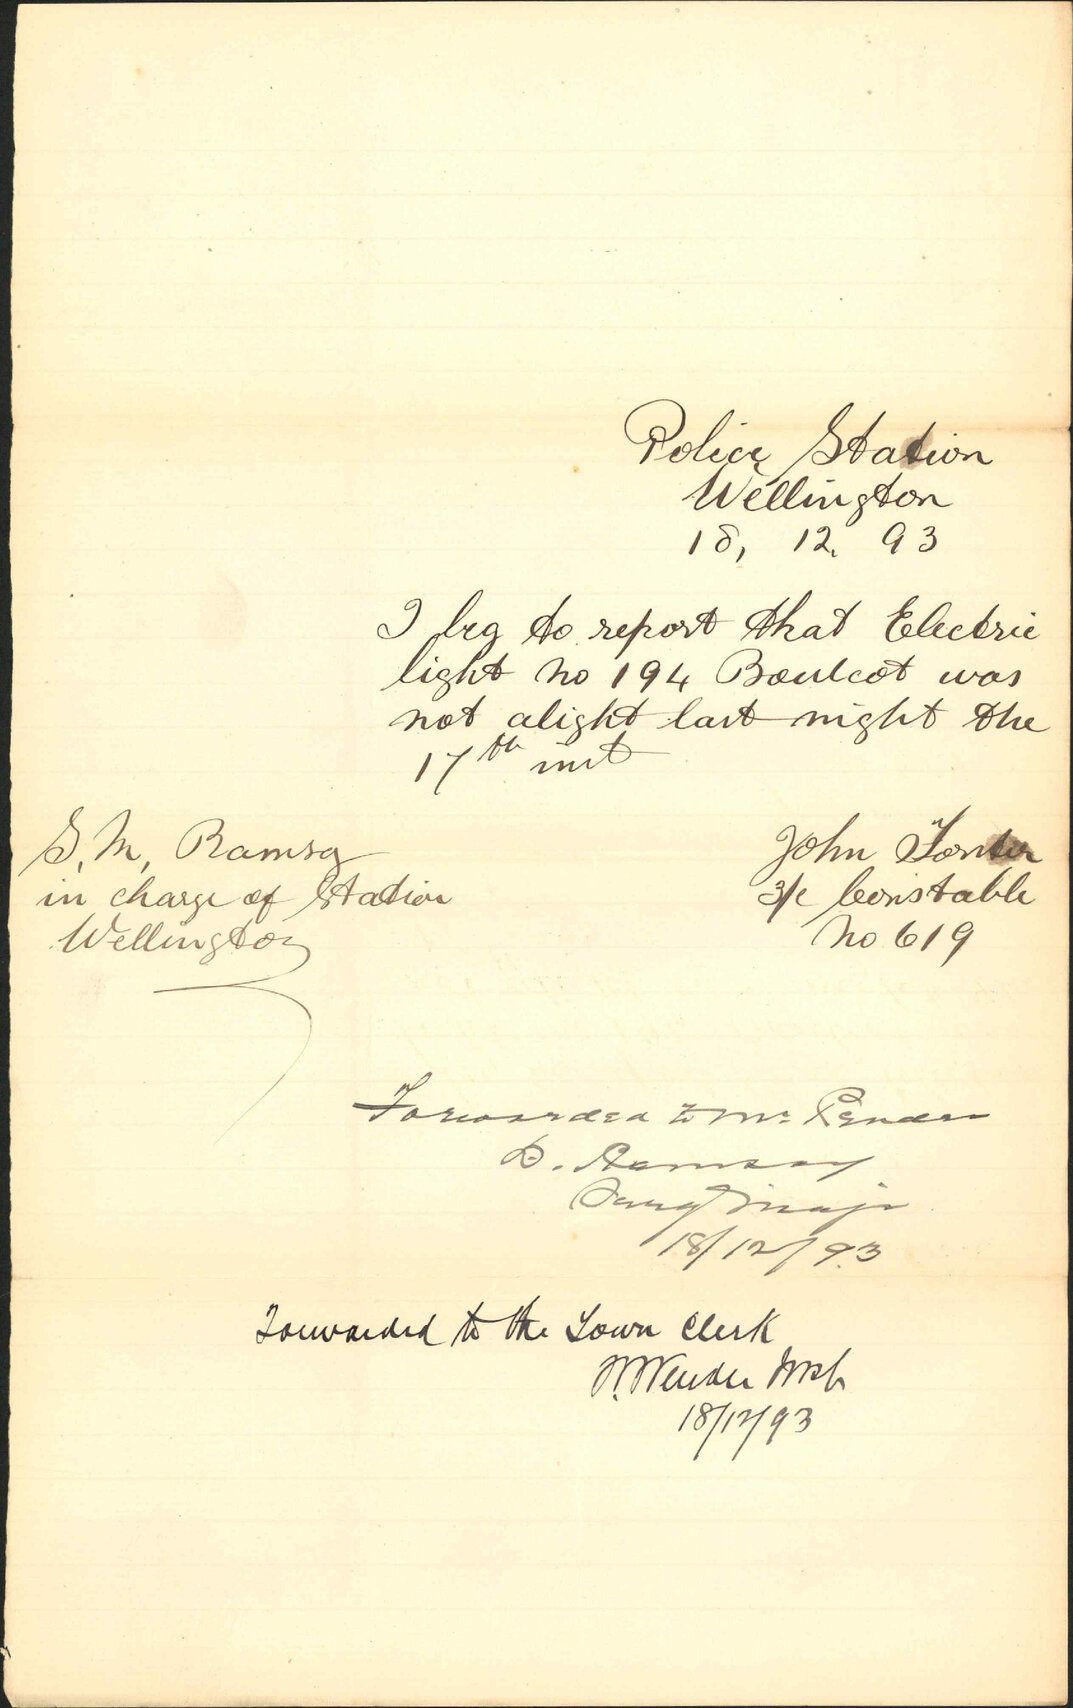 Police Station
Wellington
18, 12, 93
I beg to report that Electric
light No 194 Boulcot was
not alight last night the
17th inst
John Foster
3/c Constable
No 619
S. M, Ramsy
in charge of Station
Wellington
Forwarded to Mr Pender
D. Ramsay
Sergt Major
18/12/93
Forwarded to the Town Clerk
Pender Insp
18/12/93